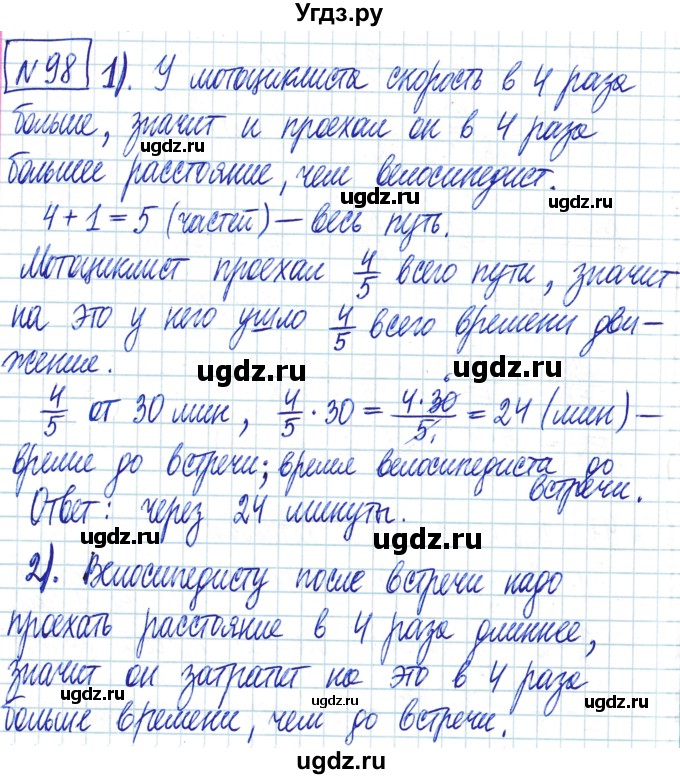 Угдз.ру
№98 1). У мотоциклиста скорость в 4 раза
больше, значит и проехал он в 4 раза
ugdz.ru ugdz.ru
большее расстояние, чем велосипедист.
ugdz.ru
4+1=5 (частей) – весь путь.
ugdz.ru
Мотоциклист проехал 4/5 всего пути, значит
на это у него ушло 4/5 всего времени дви-
жение.
ugdz.ru ugdz.ru
4/5 от 30 мин, 4/5 · 30 = 4·30/5 = 24 (мин) –
время до встречи; время велосипедиста до
встречи.
ugdz.ru
Ответ: через 24 минуты.
ugdz.ru ugdz.ru
2). Велосипедисту после встречи надо
проехать расстояние в 4 раза длиннее,
ugdz.ru
значит он затратит на это в 4 раза
ugdz.ru ugdz.ru
больше времени, чем до встречи.
ugdz.ru